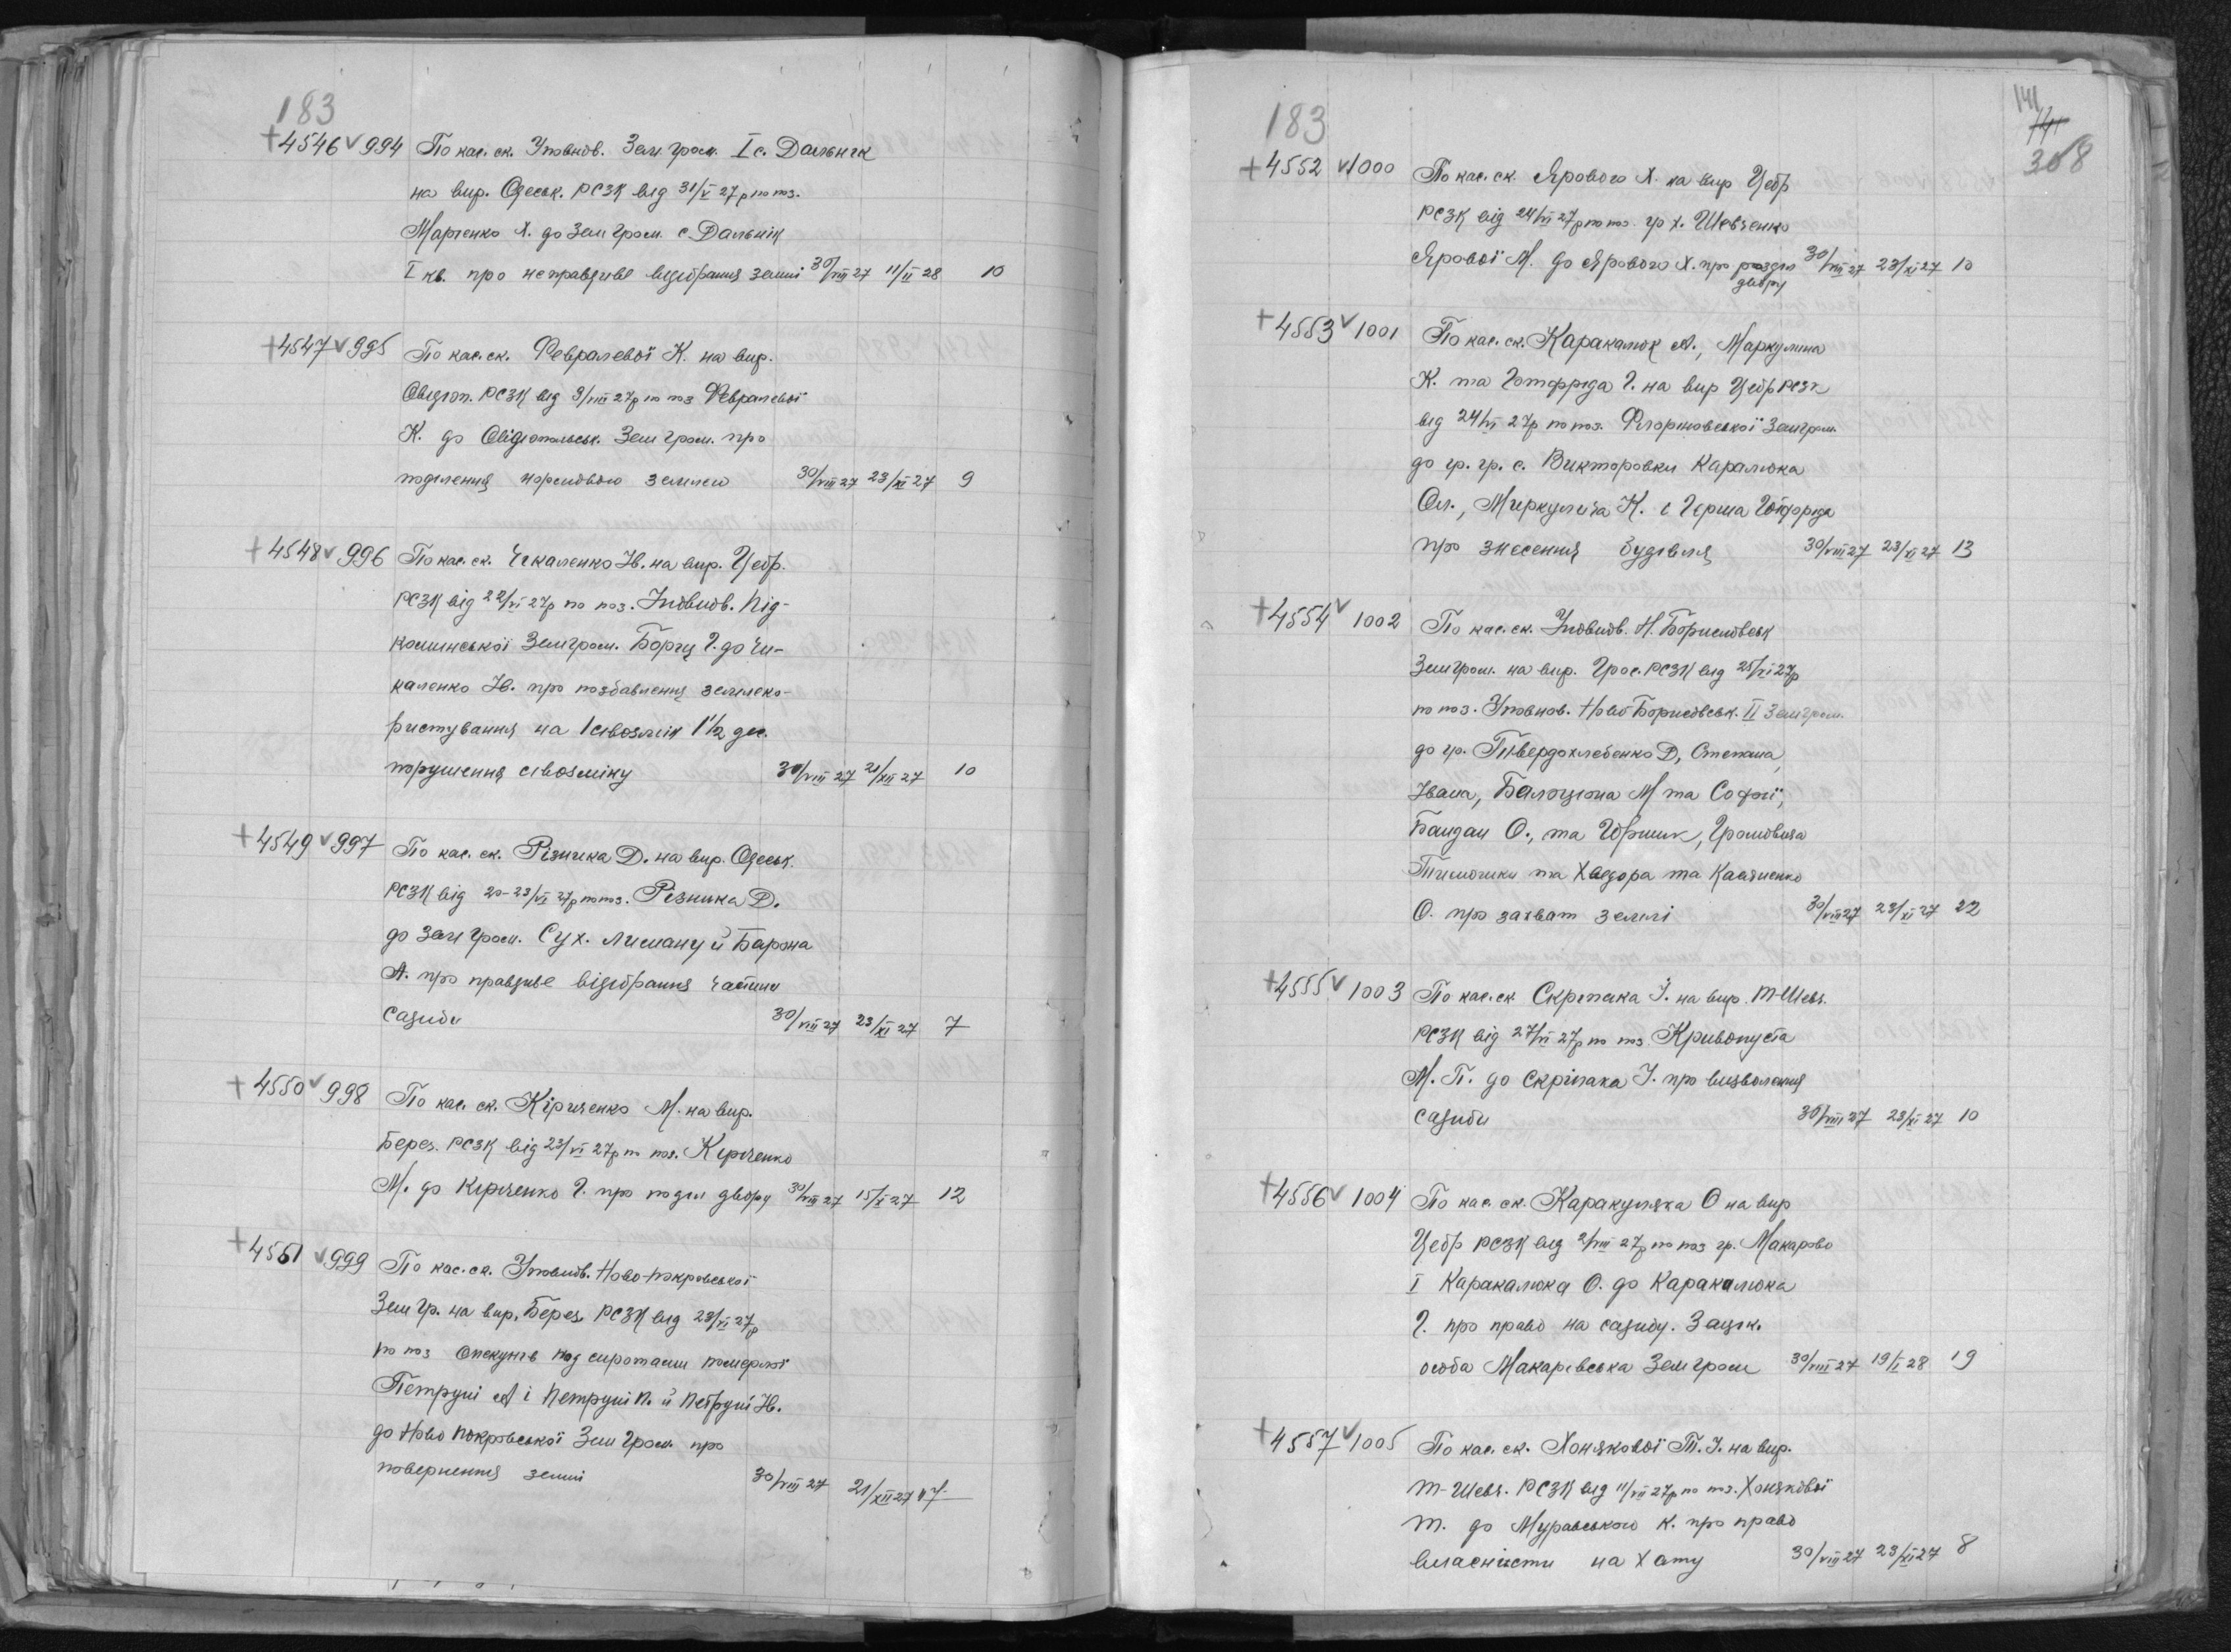 183
+4546 v 994 По кас. ск. Уповнов. Зем. гром. I с. Дальник
на вир. Одеськ. РСЗК від 31/V 27р по поз.
Марченко Х. до Земгром. с. Дальник
I кв. про неправдиве відібрання землі 30/VIII 27 11/II 28 10
+4547 v 995 По кас. ск. Февралевої К. на вир.
Овідіоп. РСЗК від 9/VIII 27р по поз Февралевої
К. до Овідіопольськ. Земгром. про
поділення нормовою землею 30/VIII 27 23/XI 27 9
+4548 v 996 По кас. ск. Чикаленко Ів. на вир. Цебр.
РСЗК від 22/VI 27р по поз. Уповнов. Під-
Земгром. Г. до Чи-
каленко Ів. про позбавлення землеко-
ристування на 1 сівозмін 1½ дес.
порушення сівозміну 30/VIII 27 21/XII 27 10
+4549 v 997 По кас. ск. Різника Д. на вир. Одеськ.
РСЗК від 20-23/VI 27р по поз. Різника Д.
до Земгром. Сух. Лиману й Барона
А. про правдиве відібрання частини
садиби 30/VIII 27 23/XI 27 7
+4550 v 998 По кас. ск. Кіриченко М. на вир.
Берез. РСЗК від 23/VI 27р по поз. Кіриченко
М. до Кіриченко Г. про поділ двору 30/VIII 27 15/X 27 12
+4551 v 999 По кас. ск. Уповнов. Ново-покровської
Зем гр. на вир. Берез. РСЗК від 23/VI 27р
по поз опекунів над сиротами померлої
Петруні А і Петруні П. й Петруні Ів.
до Ново Покровської Зем Гром. про
повернення землі 30/VIII 27 21/XII 27 17
183
141
141
308
+4552 v 1000 По кас. ск. Ярового Х. на вир Цебр
РСЗК від 24/VI 27р по поз. гр х. Шевченко
Ярової М. до Ярового Х. про розділ 30/VIII 27 23/XI 27 10
двору
+4553 v 1001 По кас. ск. Каракалюк А., Маркулина
К. та Готфріда Г. на вир Цебр РСЗК
від 24/VI 27р по поз. Земгром.
до гр. гр. с. Викторовки Каралюка
Ол., Миркулича К. і Герша Готфріда
про знесення будівля 30/VIII 27 23/XI 27 13
+4554 v 1002 По кас. ск. Уповнов. Н. Борисовськ
Земгром. на вир. Грос. РСЗК від 25/VI 27р
по поз. Уповнов. Ново Борисовськ. II Земгром.
до гр. Твердохлебенко Д, Степана,
Івана, М та Софії,
О., та
та Хведора та Касяненко
О. про захват землі 30/VIII 27 23/XI 27 22
+4555 v 1003 По кас. ск. Скріпака І. на вир. Т-Шевч.
РСЗК від 27/VI 27р по поз. Кривопуста
М. П. до Скріпака І. про визволення
садиби 30/VIII 27 23/XI 27 10
+4556 v 1004 По кас. ск. Каракуляка О на вир
Цебр РСЗК від 2/VIII 27р по поз гр. Макарово
I Каракалюка О. до Каракалюка
Г. про право на садибу. Зацік.
особа Макарівська Земгром 30/VIII 27 19/I 28 19
+4557 v 1005 По кас. ск. Хонякової Т. І. на вир.
Т-Шевч. РСЗК від 11/VII 27р по поз. Хонякової
Т. до Муравського К. про право
власности на хату 30/VIII 27 23/XI 27 8